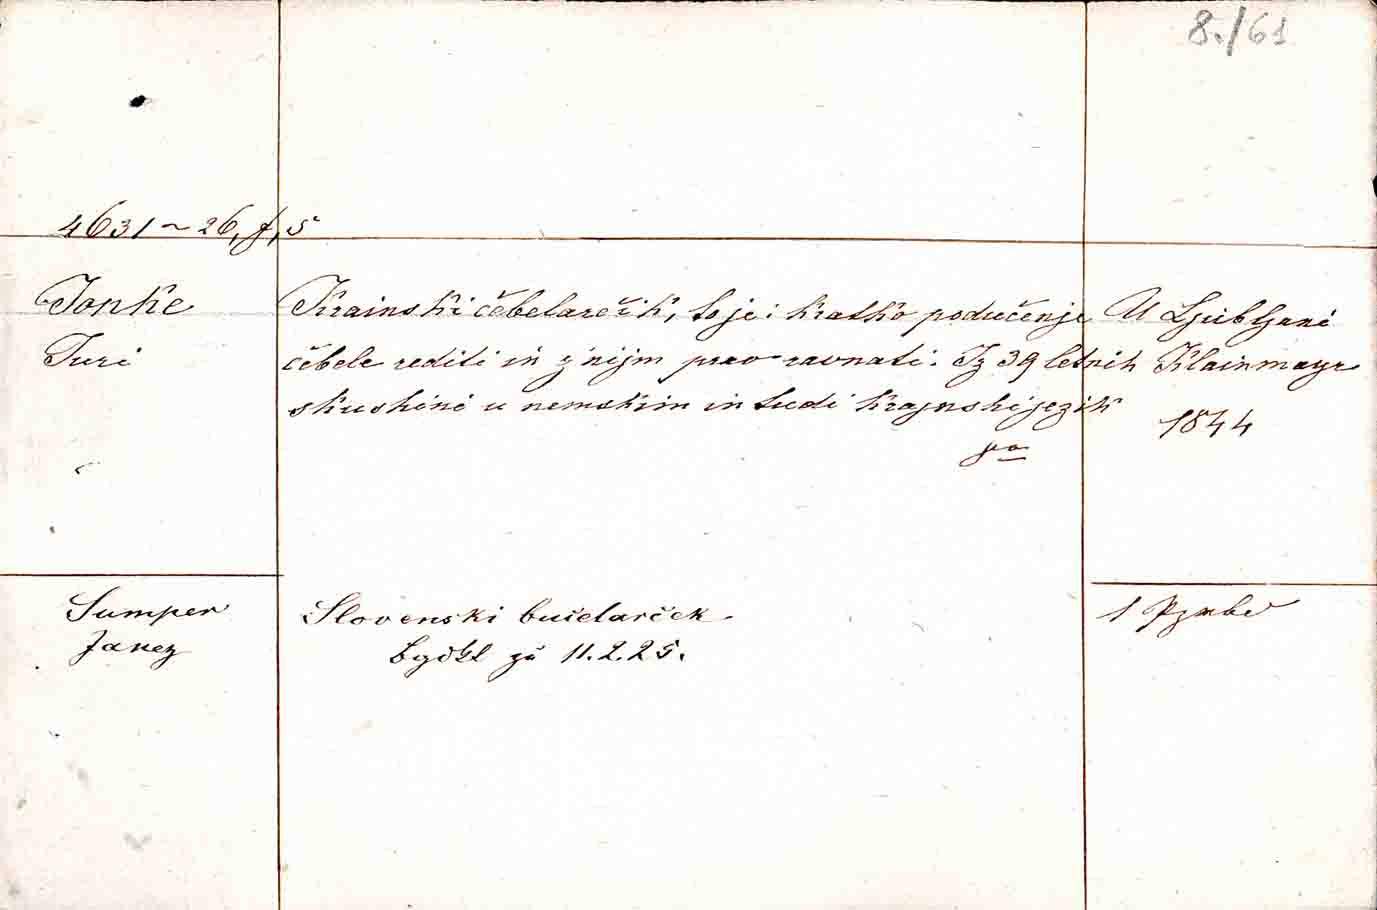 8./61
4631 ~ 26, f, 5
Jonke
Juri
Krainski čebelarčik, to je: kratko podučenje
čebele rediti in z'nijm prav ravnati. Iz 39 letnih
skushini u nemskim in tudi krajnski jezik
U Ljubljani
Klainmayr
1844
Sumper
Janez
Slovenski bučelarček
11.2.25.
1